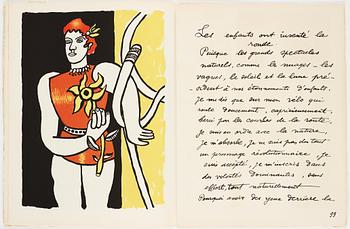 Les enfants ont inventé la
ronde
Puisque les grands spectacles
naturels, comme le nuages - les
vagues, le soleil et la lune pré-
sident à nos étonnements d'enfants.
je me dis que sur mon vélo qui
roule doucement, capricieusement,
bercé par les courbes de la route.
Je suis en ordre avec la nature,
je m'absorbe, je ne suis pas du tout
un personnage révolutionnaire, je
suis accepté, je m'inscris dans
des volontés Dominantes, sans
effort, tout naturellement
Pourquoi avoir des yeux derrière la